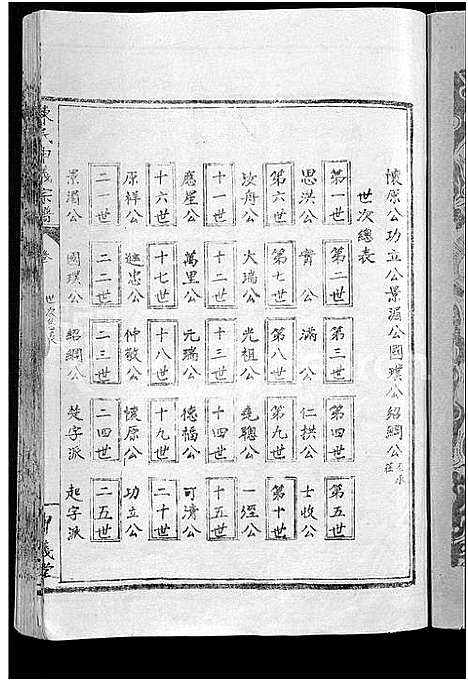 懷原公功立公景湄公國璞公紹綱公
世次總表
第一世 第二世 第三世 第四世 第五世
思洪公 實公 滿公 仁拱公 士收公
第六世 第七世 第八世 第九世 第十世
汝舟公 大瑞公 光祖公 堯聰公 一經公
十一世 十二世 十三世 十四世 十五世
應星公 萬里公 元瑞公 德福公 可清公
十六世 十七世 十八世 十九世 二十世
原祥公 進忠公 仲敬公 懷原公 功立公
二一世 二二世 二三世 二四世 二五世
景湄公 國璞公 紹綱公 焚字派 起字派
陳氏 義宗譜
卷 世次
義堂